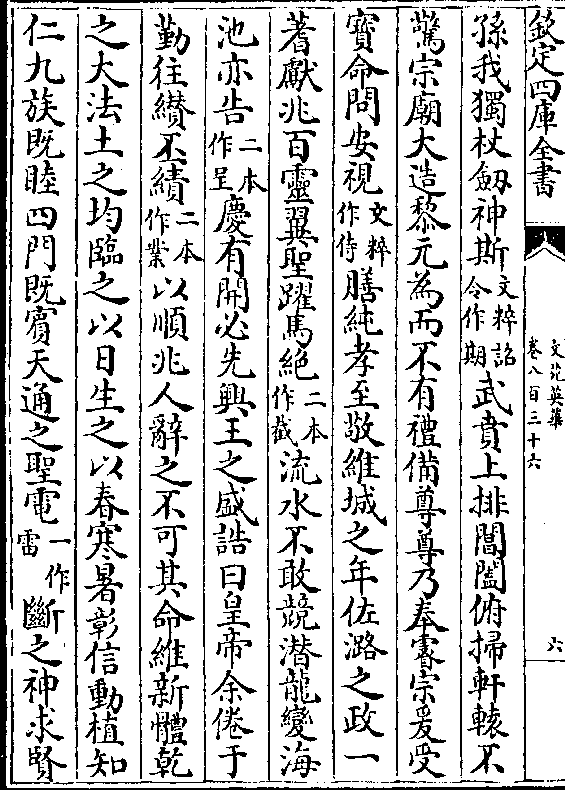 欽定四庫全書
文苑英華
卷八百三十六
六
孫我獨杖劔神斯文粹詔令作期武賁上排閶闔俯掃軒轅不
驚宗廟大造黎元為而不有禮備尊尊乃奉睿宗爰受
寳命問安視文粹作侍膳純孝至敬維城之年佐潞之政一
蓍獻兆百靈翼聖躍馬絶二本作截流水不敢競潜龍變海
池亦告二本作呈慶有開必先興王之盛誥曰皇帝余倦于
勤往纉丕績二本作業以順兆人辭之不可其命維新體乾
之大法土之均臨之以日生之以春寒暑彰信動植知
仁九族既睦四門既賓天通之聖電一作雷斷之神求賢